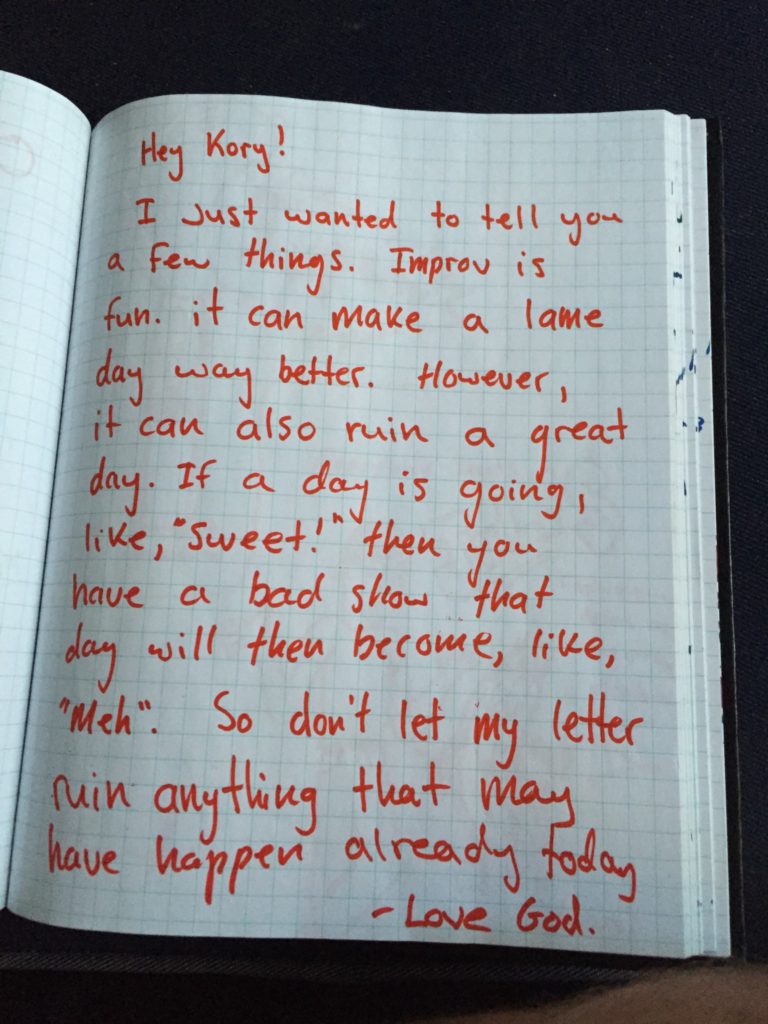 Hey Kory!
I Just wanted to tell you
a few things. Improv is
fun. it can make a lame
day way better. However,
it can also ruin a great
day. If a day is going,
like, "Sweet!" then you
have a bad show that
day will then become, like,
"Meh". So don't let my letter
ruin anything that may
have happen already today
- Love God.